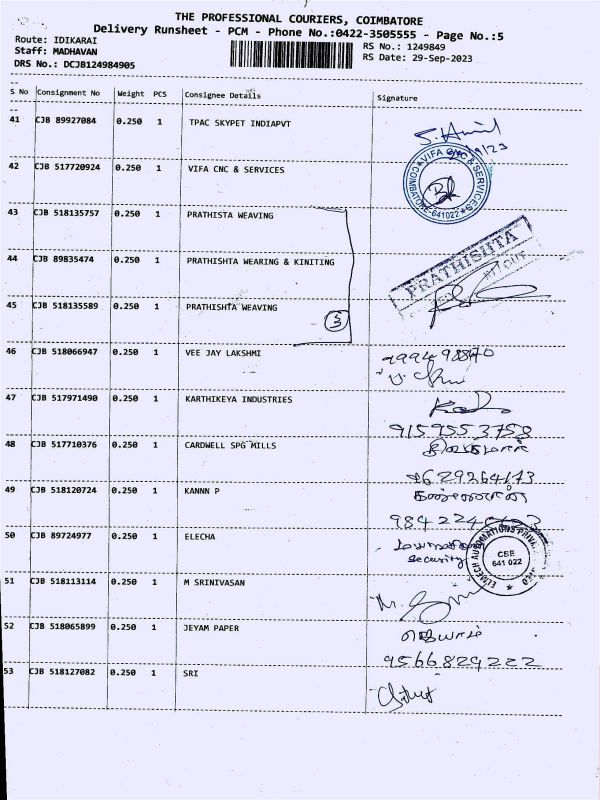 THE PROFESSIONAL COURIERS, COIMBATORE
Delivery Runsheet - PCM - Phone No.:0422-3505555 - Page No.:5
Route: IDIKARAI
Staff: MADHAVAN
DRS No.: DCJB124984905
RS No.: 1249849
RS Date: 29-Sep-2023
S No Consignment No Weight PCS Consignee Details Signature
41 CJB 89927084 0.250 1 TPAC SKYPET INDIAPVT
42 CJB 517720924 0.250 1 VIFA CNC & SERVICES
VIFA CNC & SERVICES
COIMBATORE-641022
43 CJB 518135757 0.250 1 PRATHISTA WEAVING
44 CJB 89835474 0.250 1 PRATHISHTA WEARING & KINITING
PRATHISHTA
45 CJB 518135589 0.250 1 PRATHISHTA WEAVING
3
46 CJB 518066947 0.250 1 VEE JAY LAKSHMI
47 CJB 517971490 0.250 1 KARTHIKEYA INDUSTRIES
9159553758
48 CJB 517710376 0.250 1 CARDWELL SPG MILLS
49 CJB 518120724 0.250 1 KANNN P
50 CJB 89724977 0.250 1 ELECHA
Security
CBE
641 022
51 CJB 518113114 0.250 1 M SRINIVASAN
52 CJB 518065899 0.250 1 JEYAM PAPER
ஜெயம்
9566829222
53 CJB 518127082 0.250 1 SRI